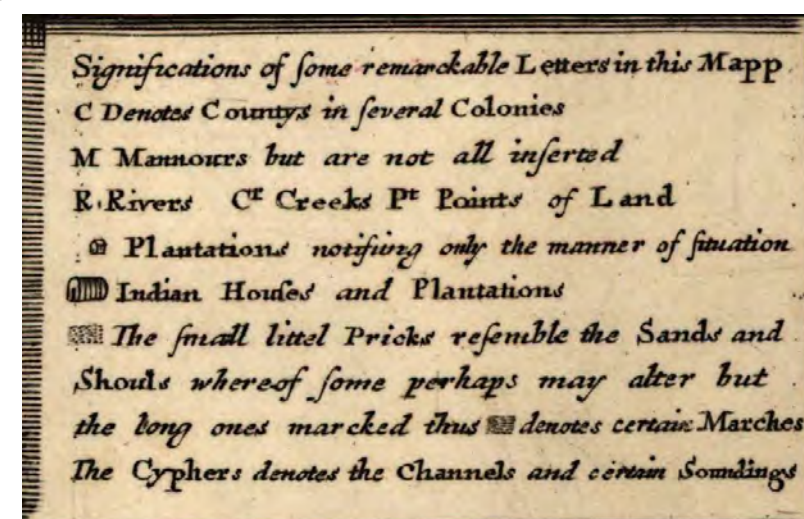 Significations of ſome remarckable Letters in this Mapp
C Denotes Countys in ſeveral Colonies
M Mannours but are not all inſerted
R. Rivers Cr Creeks Pt Points of Land
Plantations notifiing only the manner of ſituation
Indian Houſes and Plantations
The ſmall littel Pricks reſemble the Sands and
Shouls whereof ſome perhaps may alter but
the long ones marcked thus denotes certain Marches
The Cyphers denotes the Channels and certain Soundings